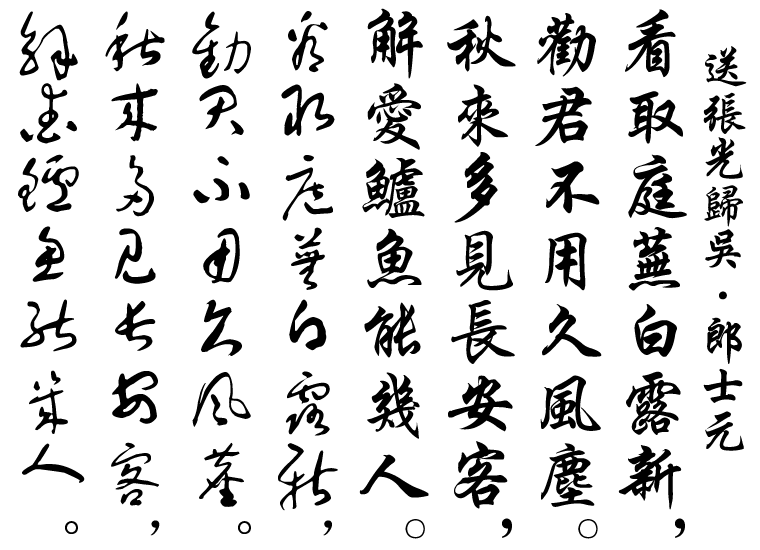 送張光歸吳·郎士元
看取庭蕪白露新，
勸君不用久風塵。
秋來多見長安客，
解愛鱸魚能幾人。
看取庭蕪白露新，
勸君不用久風塵。
秋來多見長安客，
解愛鱸魚能幾人。